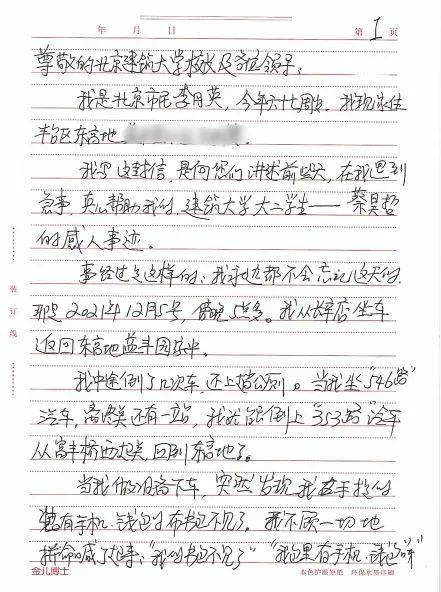 年 月 日 第 1 页
尊敬的北京建筑大学校长及各位领导:
我是北京市民李月英,今年六十七周岁。我现家住
丰台区东高地
我写这封信,是向您们讲述前些天,在我遇到
急事,真心帮助我的,建筑大学大二学生——蔡昊哲
的感人事迹。
事经过是这样的:我永远都不会忘记这天的。
那是2021年12月5号,傍晚5点多。我从长辛店坐车
返回东高地蓝丰园家中。
我中途倒了几次车,还上错公则。当我坐"546路"
汽车,离终点还有一站,我就能倒上"353路"汽车
从富丰桥西上车回到东高地了。
当我做好准备下车,突然发现我左手提的
装有手机、钱包的布书包不见了。我不顾一切地
拼命喊了起来:"我的书包不见了""我包里有手机、钱包呀"
装订线
金儿博士 本色护眼原纸 环保水墨印刷